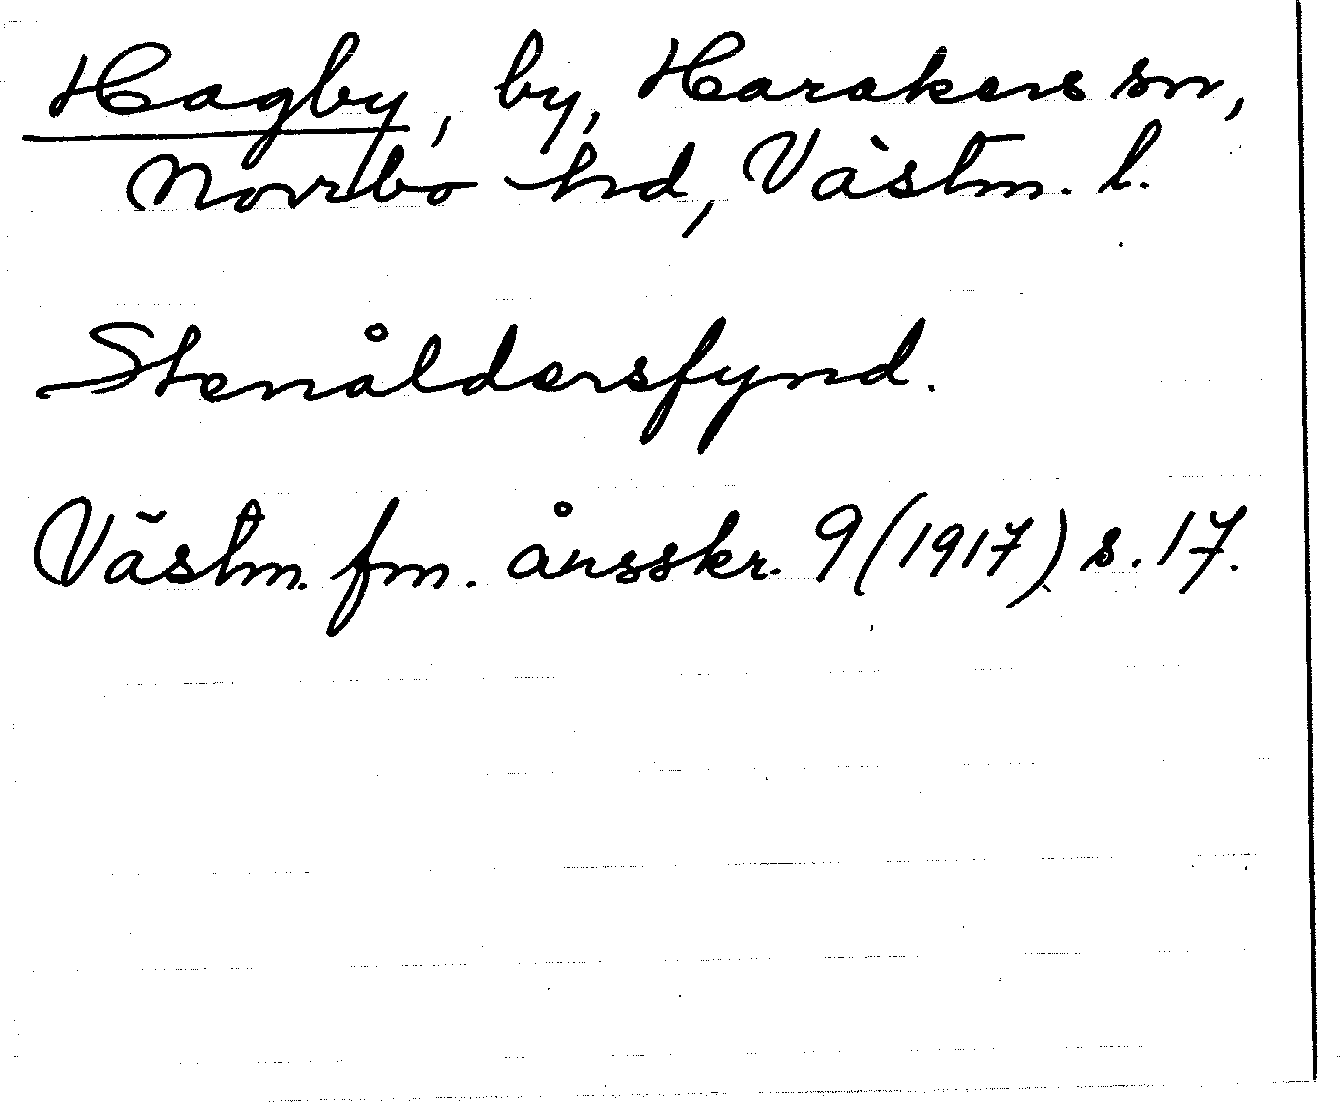 Hagby, by, Harakers sn,
Norrbo hd, Västm. l.
Stenåldersfynd.
Västm. fm. årsskr. 9 (1917) s. 17.